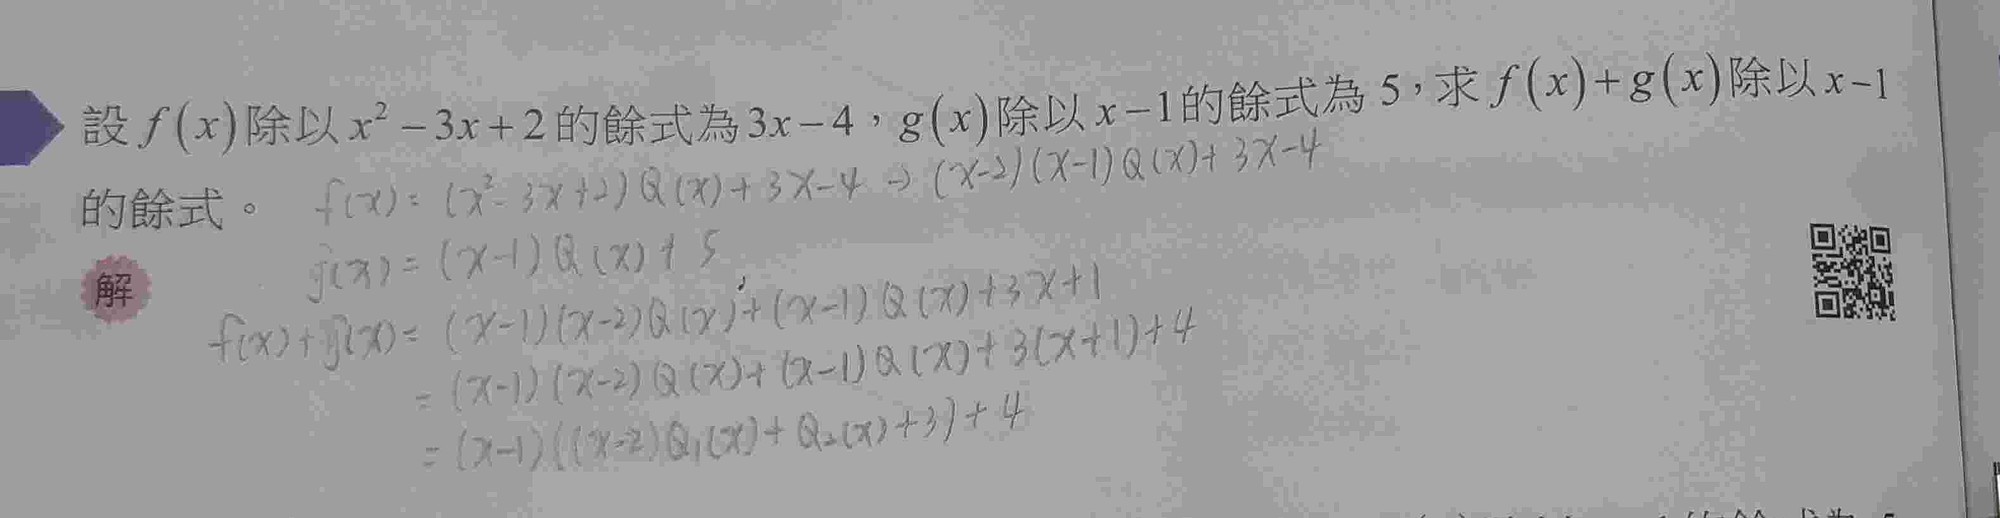 設 f(x) 除以 x² − 3x + 2 的餘式為 3x − 4，g(x) 除以 x − 1 的餘式為 5，求 f(x) + g(x) 除以 x − 1
的餘式。 f(x) = (x² - 3x + 2) Q(x) + 3x - 4 → (x-2)(x-1) Q(x) + 3x - 4
解 g(x) = (x-1) Q(x) + 5
f(x) + g(x) = (x-1)(x-2) Q(x) + (x-1) Q(x) + 3x + 1
= (x-1)(x-2) Q(x) + (x-1) Q(x) + 3(x+1) + 4
= (x-1)((x-2) Q₁(x) + Q₂(x) + 3) + 4